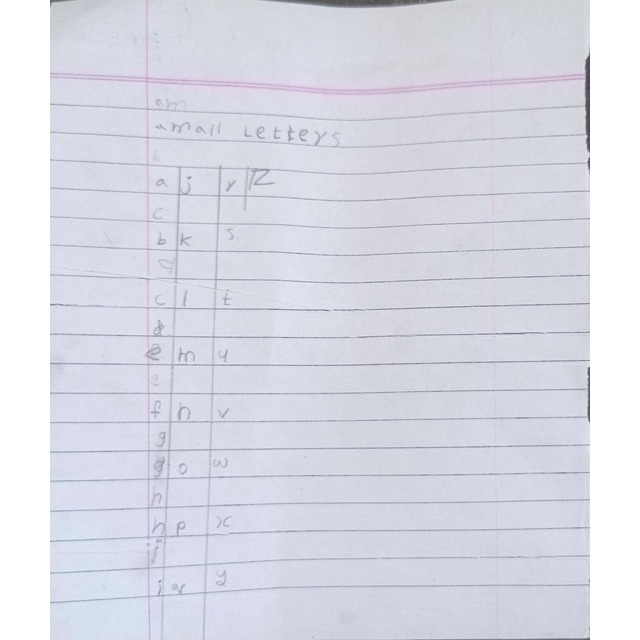 am
small Letters
a j r Z
c
b k s
c l t
d
e m u
f n v
g
g o w
h
h p x
j
i q y